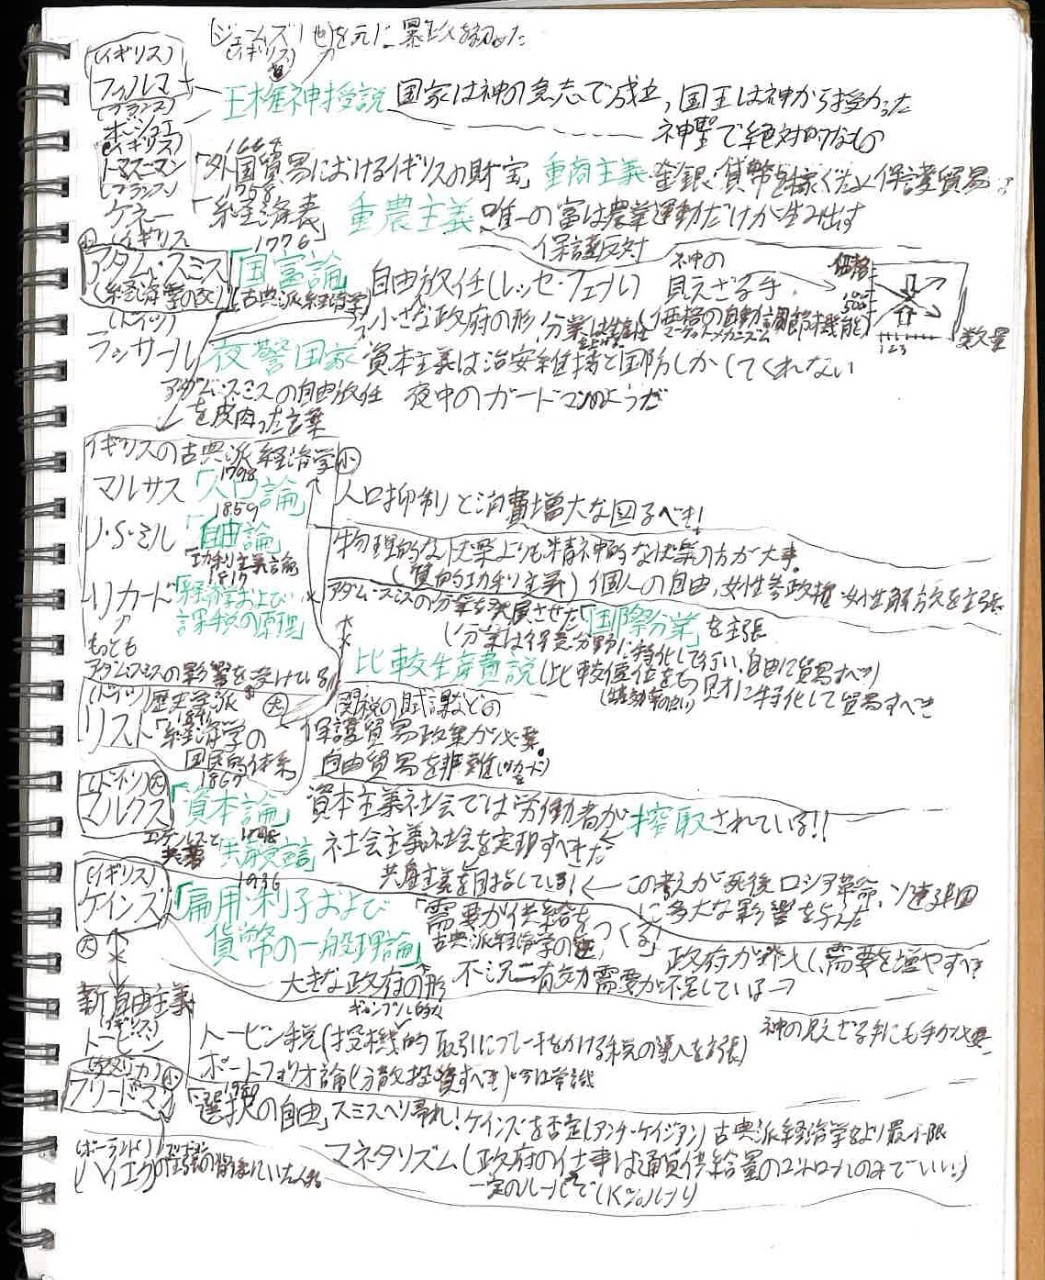 (ジェームズ1世)を元に暴政を
(イギリス)
(イギリス)
フィルマー
王権神授説 国家は神の意志で成立、国王は神から授かった
神聖で絶対的なもの
(フランス)
ボシュエ
(イギリス)
トマス・マン
1664
「外国貿易におけるイギリスの財宝」 重商主義 金銀、貨幣を稼ぐため保護貿易
(フランス)
ケネー
1758
「経済表」 重農主義 唯一の富は農業運動だけが生み出す
保護反対
(イギリス)
アダム・スミス
(経済学の父)
1776
「国富論」
(古典派経済学)
自由放任(レッセ・フェール)
神の
見えざる手
(価格の自動調節機能)
小さな政府の形、分業は
価格
数量
123
(ドイツ)
ラッサール
夜警国家 資本主義は治安維持と国防しかしてくれない
アダム・スミスの自由放任 夜中のガードマンのようだ
を皮肉った言葉
イギリスの古典派経済学 小
マルサス
1798
「人口論」
人口抑制と消費増大な図るべき!
J・S・ミル
1859
「自由論」
功利主義論
物理的な快楽よりも精神的な快楽の方が大事。
(質的功利主義) 個人の自由、女性参政権、女性解放を主張
リカード
1817
「経済学および
課税の原理」
アダム・スミスの分業を発展させた「国際分業」を主張
(分業は得意分野に特化して行い、自由に貿易すべき)
比較生産費説(比較優位をもつ財に特化して貿易すべき
もっとも
アダムスミスの影響を受けている
(ドイツ)歴史学派 大
リスト
1841
「経済学の
国民的体系」
関税の賦課などの
保護貿易政策が必要。
自由貿易を非難(リカードを)
(ドイツ) 大
マルクス
1867
「資本論」 資本主義社会では労働者が搾取されている!!
エンゲルスと
共著
1848
「共産党宣言」 社会主義社会を実現すべきだ
共産主義を目指している! ← この考えが死後ロシア革命、ソ連建国
に多大な影響を与えた
(イギリス)
ケインズ
1936
「雇用・利子および
貨幣の一般理論」
「需要が供給をつくる」
古典派経済学の逆
大きな政府の形
不況=有効需要が不足している→
政府が介入し、需要を増やすべき
神の見えざる手にも手が必要
大
新自由主義
(イギリス)
トービン
ギャンブル的な
トービン税(投機的取引にブレーキをかける税の導入を主張)
ポートフォリオ論(分散投資すべき)今は常識
(アメリカ) 小
フリードマン
1980
「選択の自由」スミスへり帰れ!ケインズを否定(アンチ・ケイジアン) 古典派経済学をより最小限
マネタリズム(政府の仕事は通貨供給量のコントロールのみでいい)
一定のルールで(K%ルール)
ハイエク